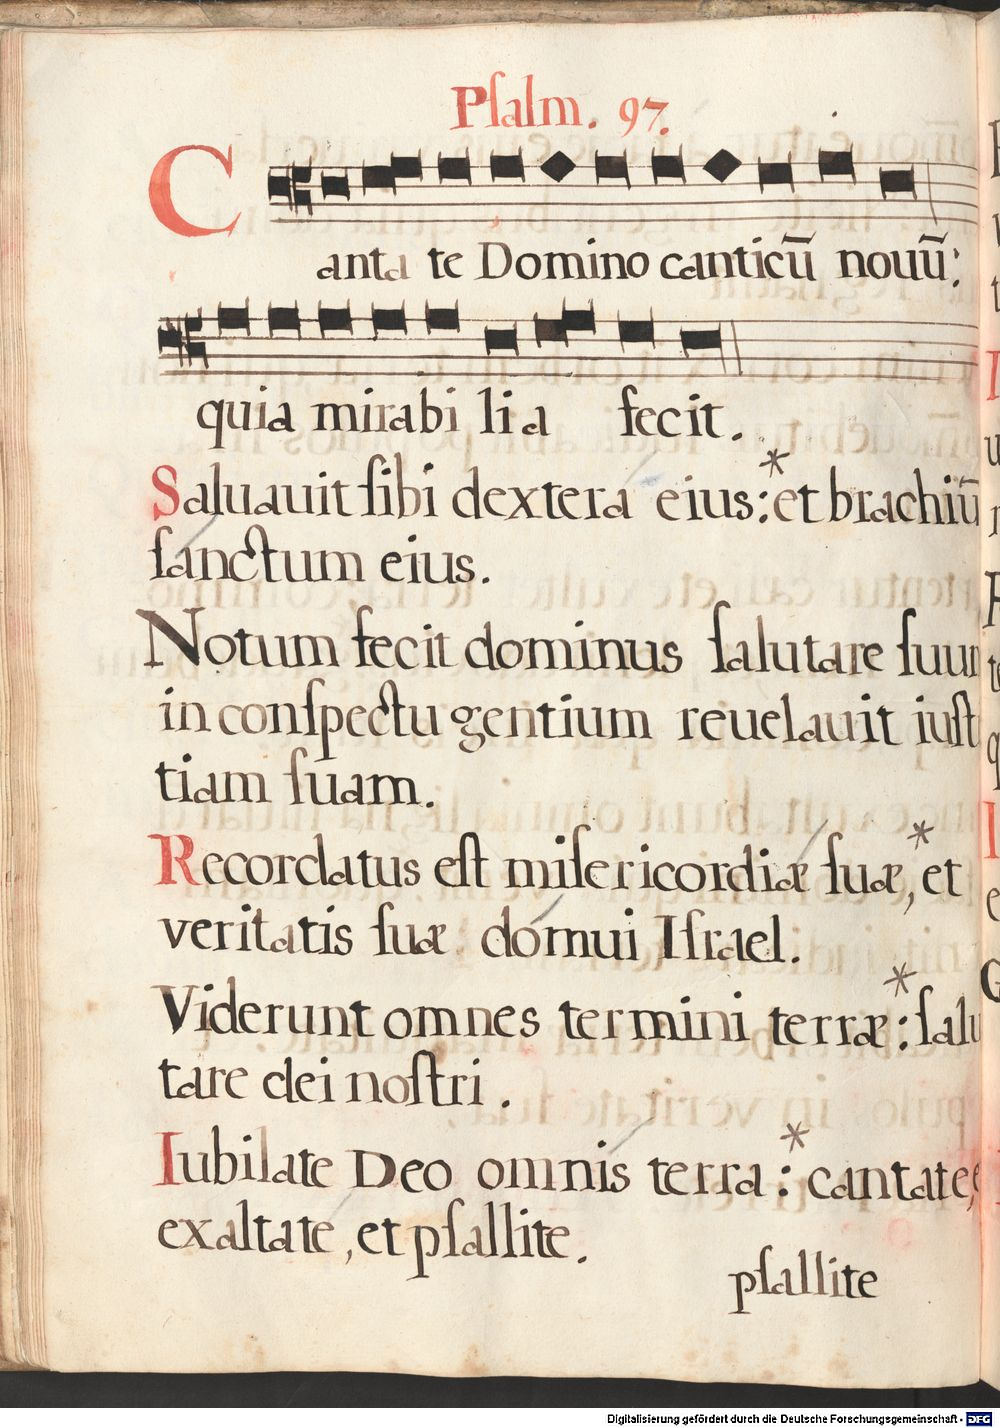 Pſalm. 97.
Canta te Domino canticū nouū:
quia mirabi li a fecit.
Saluauit ſibi dextera eius:* et brachiū
ſanctum eius.
Notum fecit dominus ſalutare ſuum
in conſpectu gentium reuelauit iuſt
tiam ſuam.
Recordatus eſt miſericordiæ ſuæ,* et
veritatis ſuæ domui Iſrael.
Viderunt omnes termini terræ:* ſalu
tare dei noſtri.
Iubilate Deo omnis terra:* cantate,
exaltate, et pſallite.
pſallite
Digitalisierung gefördert durch die Deutsche Forschungsgemeinschaft - DFG